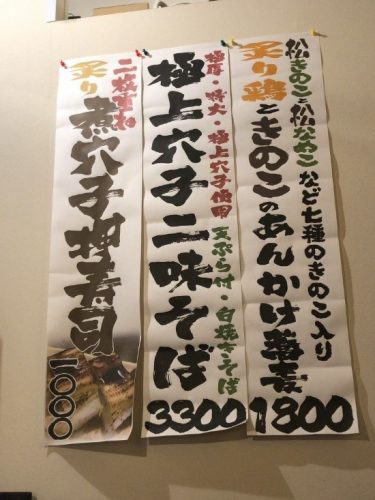 松きのこと松なめこなど七種のきのこ入り
炙り鶏ときのこのあんかけ蕎麦
1800
極厚・特大・極上穴子使用 天ぷら付・白焼きそば
極上穴子二味そば
3300
二枚重ね
炙り煮穴子押寿司
二〇〇〇